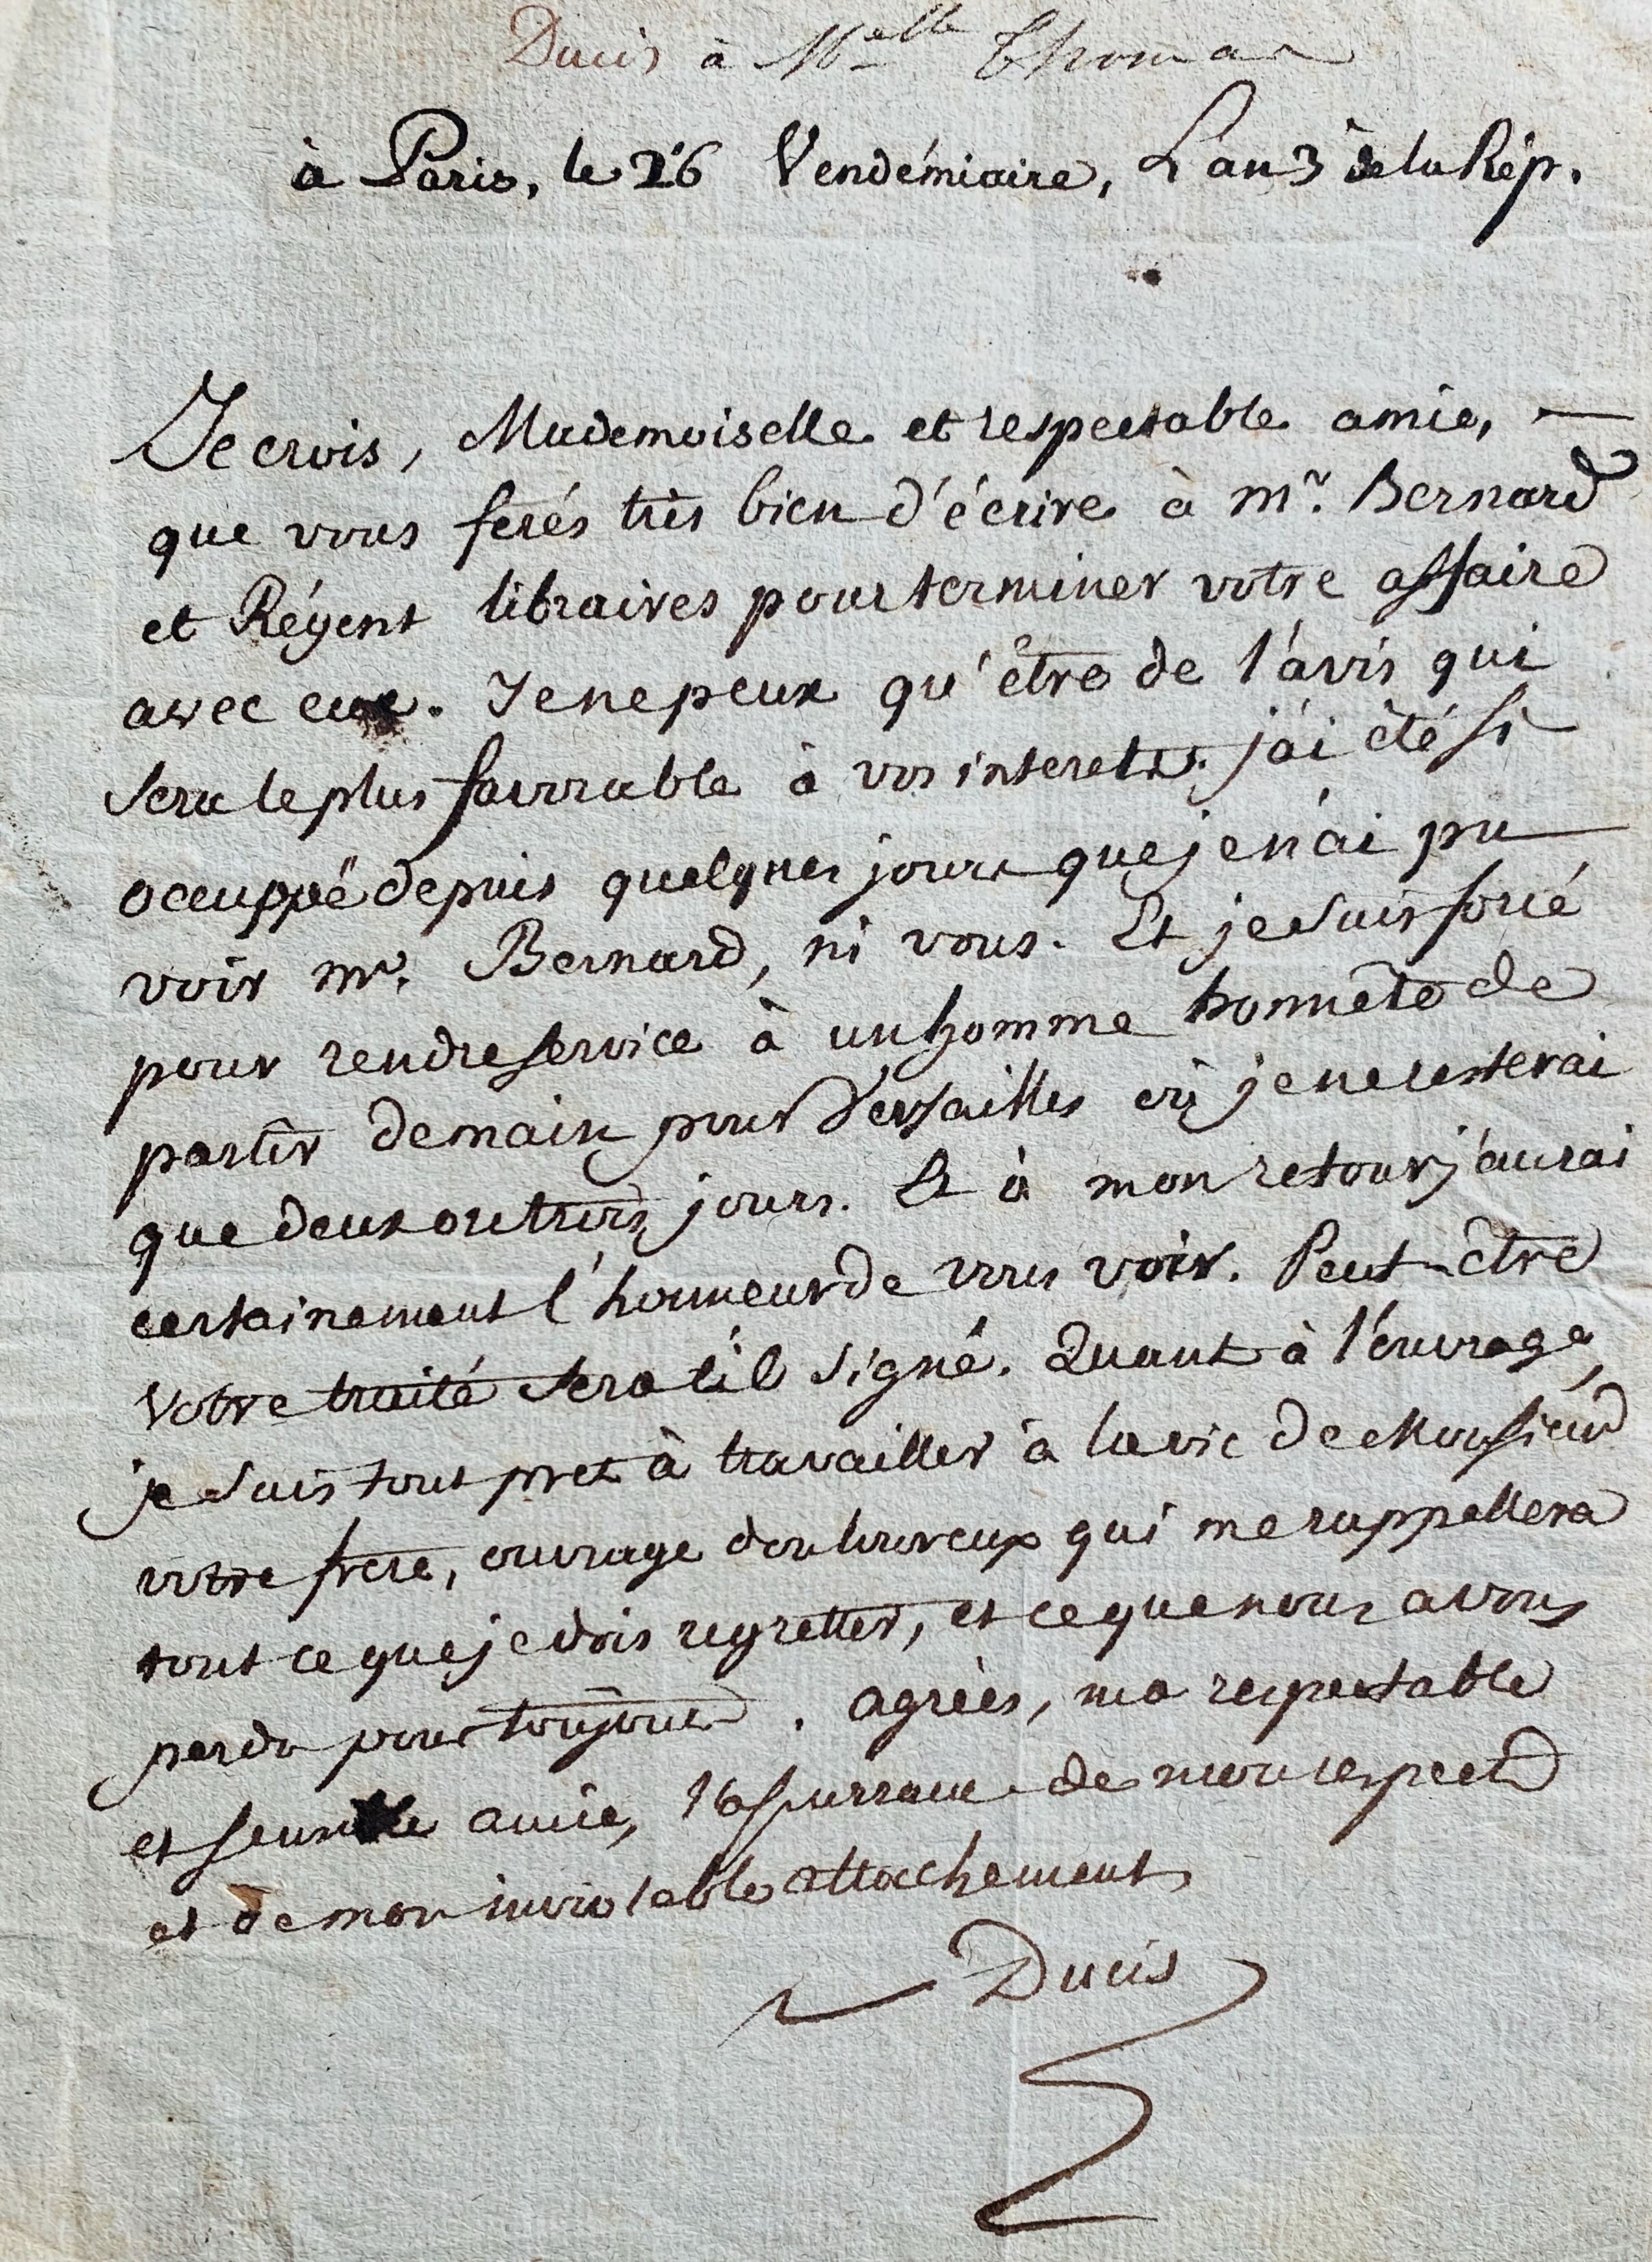 Ducis à Melle Thomas
à Paris, le 26 Vendémiaire, L'an 3 de la Rép.
Je crois, Mademoiselle et respectable amie,
que vous ferés très bien d'écrire à Mr. Bernard
et Régent libraires pour terminer votre affaire
avec eux. Je ne peux qu'être de l'avis qui
sera le plus favorable à vos interets. j'ai été si
occuppé depuis quelques jours que je n'ai pu
voir Mr. Bernard, ni vous. Et je suis forcé
pour rendre service à un homme honnête de
partir demain pour Versailles où je ne resterai
que deux ou trois jours. Et à mon retour j'aurai
certainement l'honneur de vous voir. Peut-être
votre traité sera til signé. Quant à l'ouvrage,
je suis tout pret à travailler à la vie de Monsieur
votre frere, ouvrage douloureux qui me rappellera
tout ce que je dois regretter, et ce que nous avons
perdu pour toujours. agréés, ma respectable
et amie, l'assurance de mon respect
et de mon inviolable attachement
Ducis